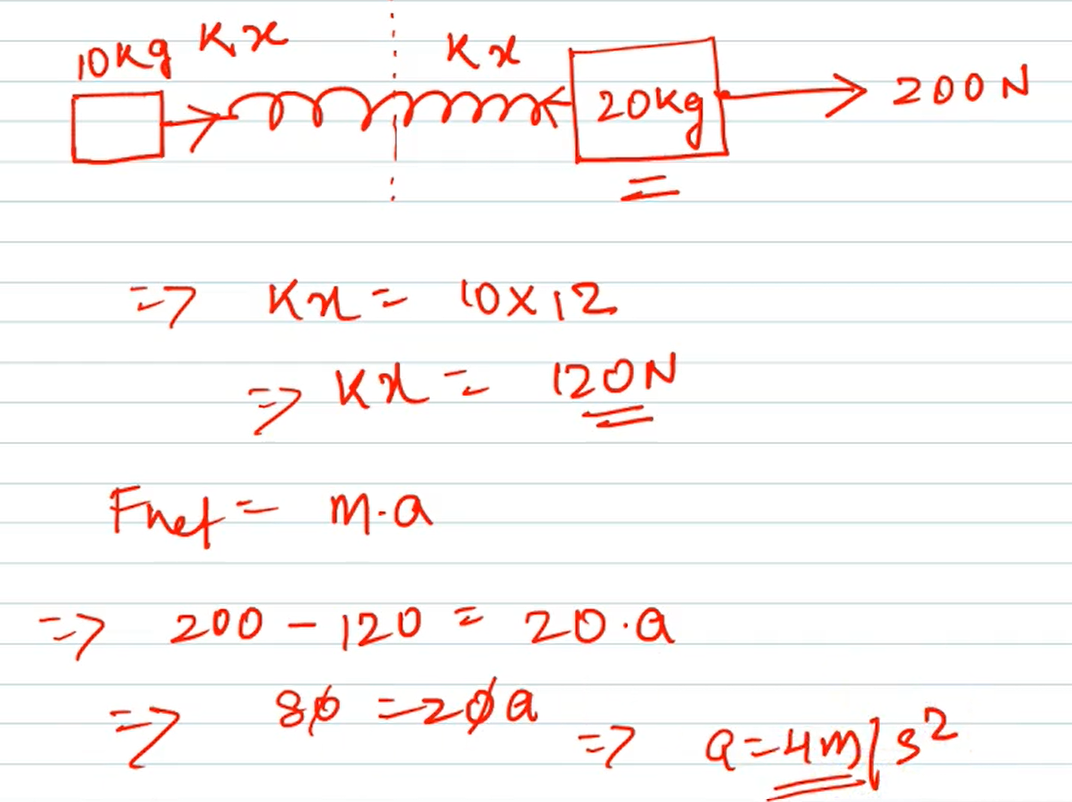 10Kg Kx Kx
20Kg 200N
=> Kx = 10x12
=> Kx = 120N
Fnet = m.a
=> 200 - 120 = 20.a
=> 80 = 20a => a = 4m/s²